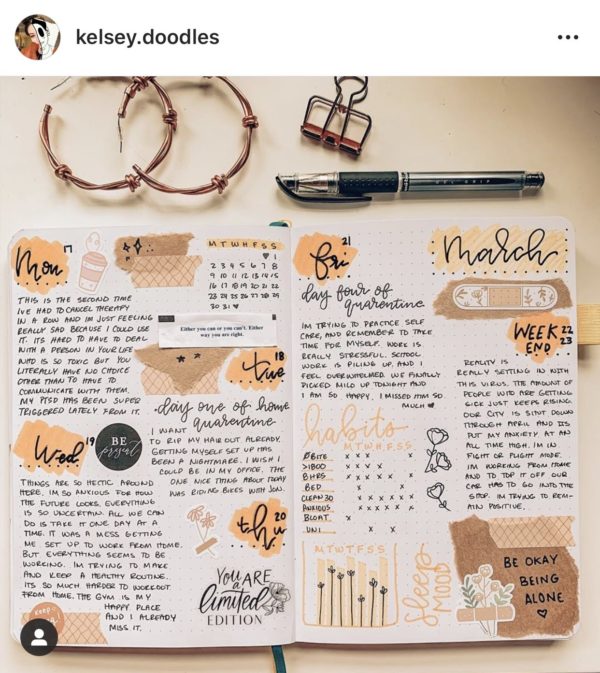 kelsey.doodles
GEL GRIP
Mon 17
THIS IS THE SECOND TIME
IVE HAD TO CANCEL THERAPY
IN A ROW AND IM JUST FEELING
REALLY SAD BECAUSE I COULD USE
IT. ITS HARD TO HAVE TO DEAL
WITH A PERSON IN YOUR LIFE
WHO IS SO TOXIC BUT YOU
LITERALLY HAVE NO CHOICE
OTHER THAN TO HAVE TO
COMMUNICATE WITH THEM.
MY PTSD HAS BEEN SUPER
TRIGGERED LATELY FROM IT.
M T W T H F S S
♥ 1
2 3 4 5 6 7 8
9 10 11 12 13 14 15
16 17 18 19 20 21 22
23 24 25 26 27 28 29
30 31 ♥
Either you can or you can't. Either
way you are right.
tue 18
day one of home
quarentine
I WANT
TO RIP MY HAIR OUT ALREADY.
GETTING MYSELF SET UP HAS
BEEN A NIGHTMARE. I WISH I
COULD BE IN MY OFFICE. THE
ONE NICE THING ABOUT TODAY
WAS RIDING BIKES WITH JON.
Wed 19
BE
present
THINGS ARE SO HECTIC AROUND
HERE. IM SO ANXIOUS FOR HOW
THE FUTURE LOOKS. EVERYTHING
IS SO UNCERTAIN. ALL WE CAN
DO IS TAKE IT ONE DAY AT A
TIME. IT WAS A MESS GETTING
ME SET UP TO WORK FROM HOME.
BUT EVERYTHING SEEMS TO BE
WORKING. IM TRYING TO MAKE
AND KEEP A HEALTHY ROUTINE.
ITS SO MUCH HARDER TO WORKOUT
FROM HOME. THE GYM IS MY
HAPPY PLACE
AND I ALREADY
MISS IT.
thu 20
YOU ARE
a limited
EDITION
fri 21
day four of
quarentine
IM TRYING TO PRACTICE SELF
CARE, AND REMEMBER TO TAKE
TIME FOR MYSELF. WORK IS
REALLY STRESSFUL. SCHOOL
WORK IS PILING UP. AND I
FEEL OVERWHELMED. WE FINALLY
PICKED MILO UP TONIGHT AND
I AM SO HAPPY. I MISSED HIM SO
MUCH ♥
habits
M T W T H F S S
>1800
8HRS
BED
CLEAN 30
ANXIOUS
BLOAT
UNI
M T W T F S S
Sleep
MOOD
March
WEEK
END
22
23
REALITY IS
REALLY SETTING IN WITH
THIS VIRUS. THE AMOUNT OF
PEOPLE WHO ARE GETTING
SICK JUST KEEPS RISING.
OUR CITY IS SHUT DOWN
THROUGH APRIL AND ITS
PUT MY ANXIETY AT AN
ALL TIME HIGH. IM IN
FIGHT OR FLIGHT MODE.
IM WORKING FROM HOME
AND TO TOP IT OFF OUR
CAR HAS TO GO INTO THE
SHOP. IM TRYING TO REM-
AIN POSITIVE.
BE OKAY
BEING
ALONE
♥